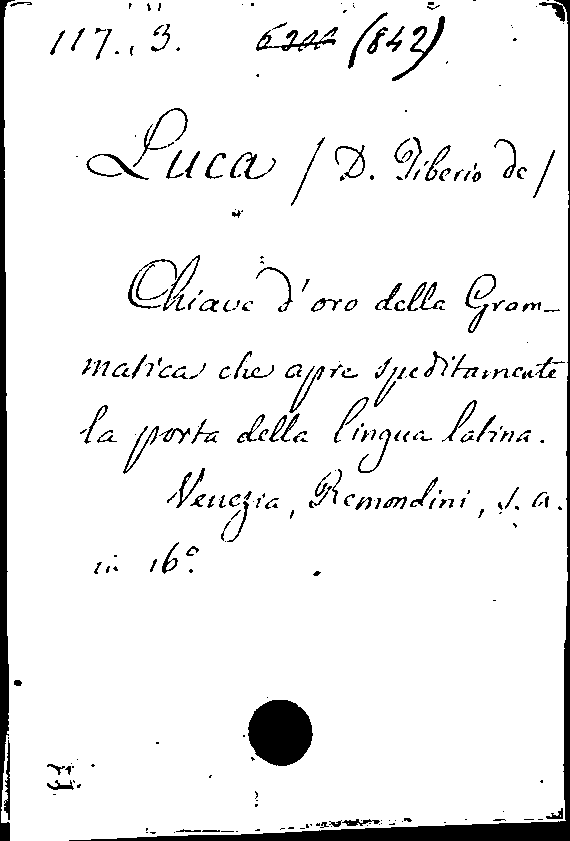 117. 3. (842)
Luca / D. Tiberio de /
Chiave d'oro della Gram-
matica che apre speditamente
la porta della lingua latina.
Venezia, Remondini, s. a.
in 16°.